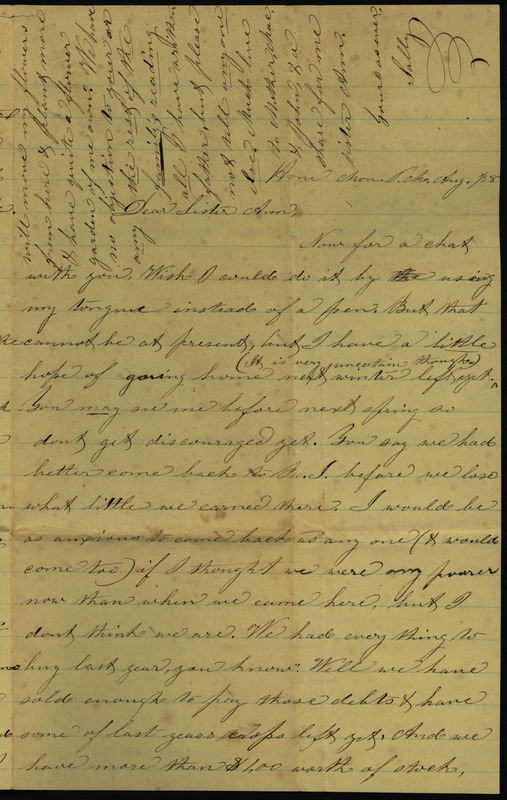 Home Mon. P.M. Aug. /28
Dear Sister Am.
Now for a chat
with you. Wish I could do it by the using
my tongue instead of a pen. But that
cannot be at present, but I have a little
(It is very uncertain though)
hope of going home next winter left yet.
You may see me before next spring so
dont get discouraged yet. You say we had
better come back to N. J. before we lose
what little we earned there. I would be
as anxious to come back as any one (& would
come too) if I thought we were any poorer
now than when we came here, but I
dont think we are. We had every thing to
buy last year, you know. Well we have
sold enough to pay those debts & have
some of last years crops left yet. And we
have more than $1,00 worth of stock,
will move my flowers
from here & plant more
& have quite a flower
garden of me own. We have
no objection to your or
the rest of the
family's reading
any
all I have written
father, but please
not tell anyone
else. Much love
to Mother, Mae,
& John, & a
share for me
sister Am.
Yours as ever.
Sally